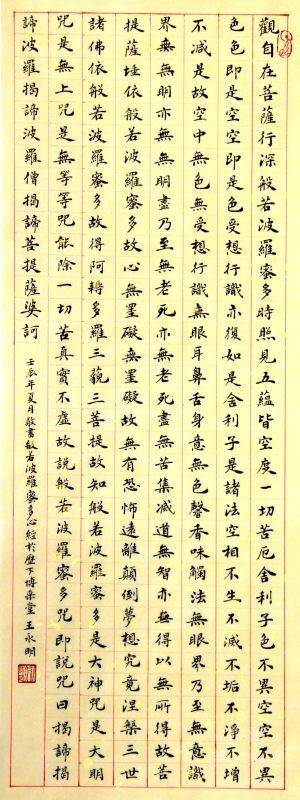 觀自在菩薩行深般若波羅蜜多時照見五蘊皆空度一切苦厄舍利子色不異空空不異
色色即是空空即是色受想行識亦復如是舍利子是諸法空相不生不滅不垢不淨不增
不減是故空中無色無受想行識無眼耳鼻舌身意無色聲香味觸法無眼界乃至無意識
界無無明亦無無明盡乃至無老死亦無老死盡無苦集滅道無智亦無得以無所得故菩
提薩埵依般若波羅蜜多故心無罣礙無罣礙故無有恐怖遠離顛倒夢想究竟涅槃三世
諸佛依般若波羅蜜多故得阿耨多羅三藐三菩提故知般若波羅蜜多是大神咒是大明
咒是無上咒是無等等咒能除一切苦真實不虛故說般若波羅蜜多咒即說咒曰揭諦揭
諦波羅揭諦波羅僧揭諦菩提薩婆訶
壬辰年夏月敬書般若波羅蜜多心經於歷下博采堂王永明